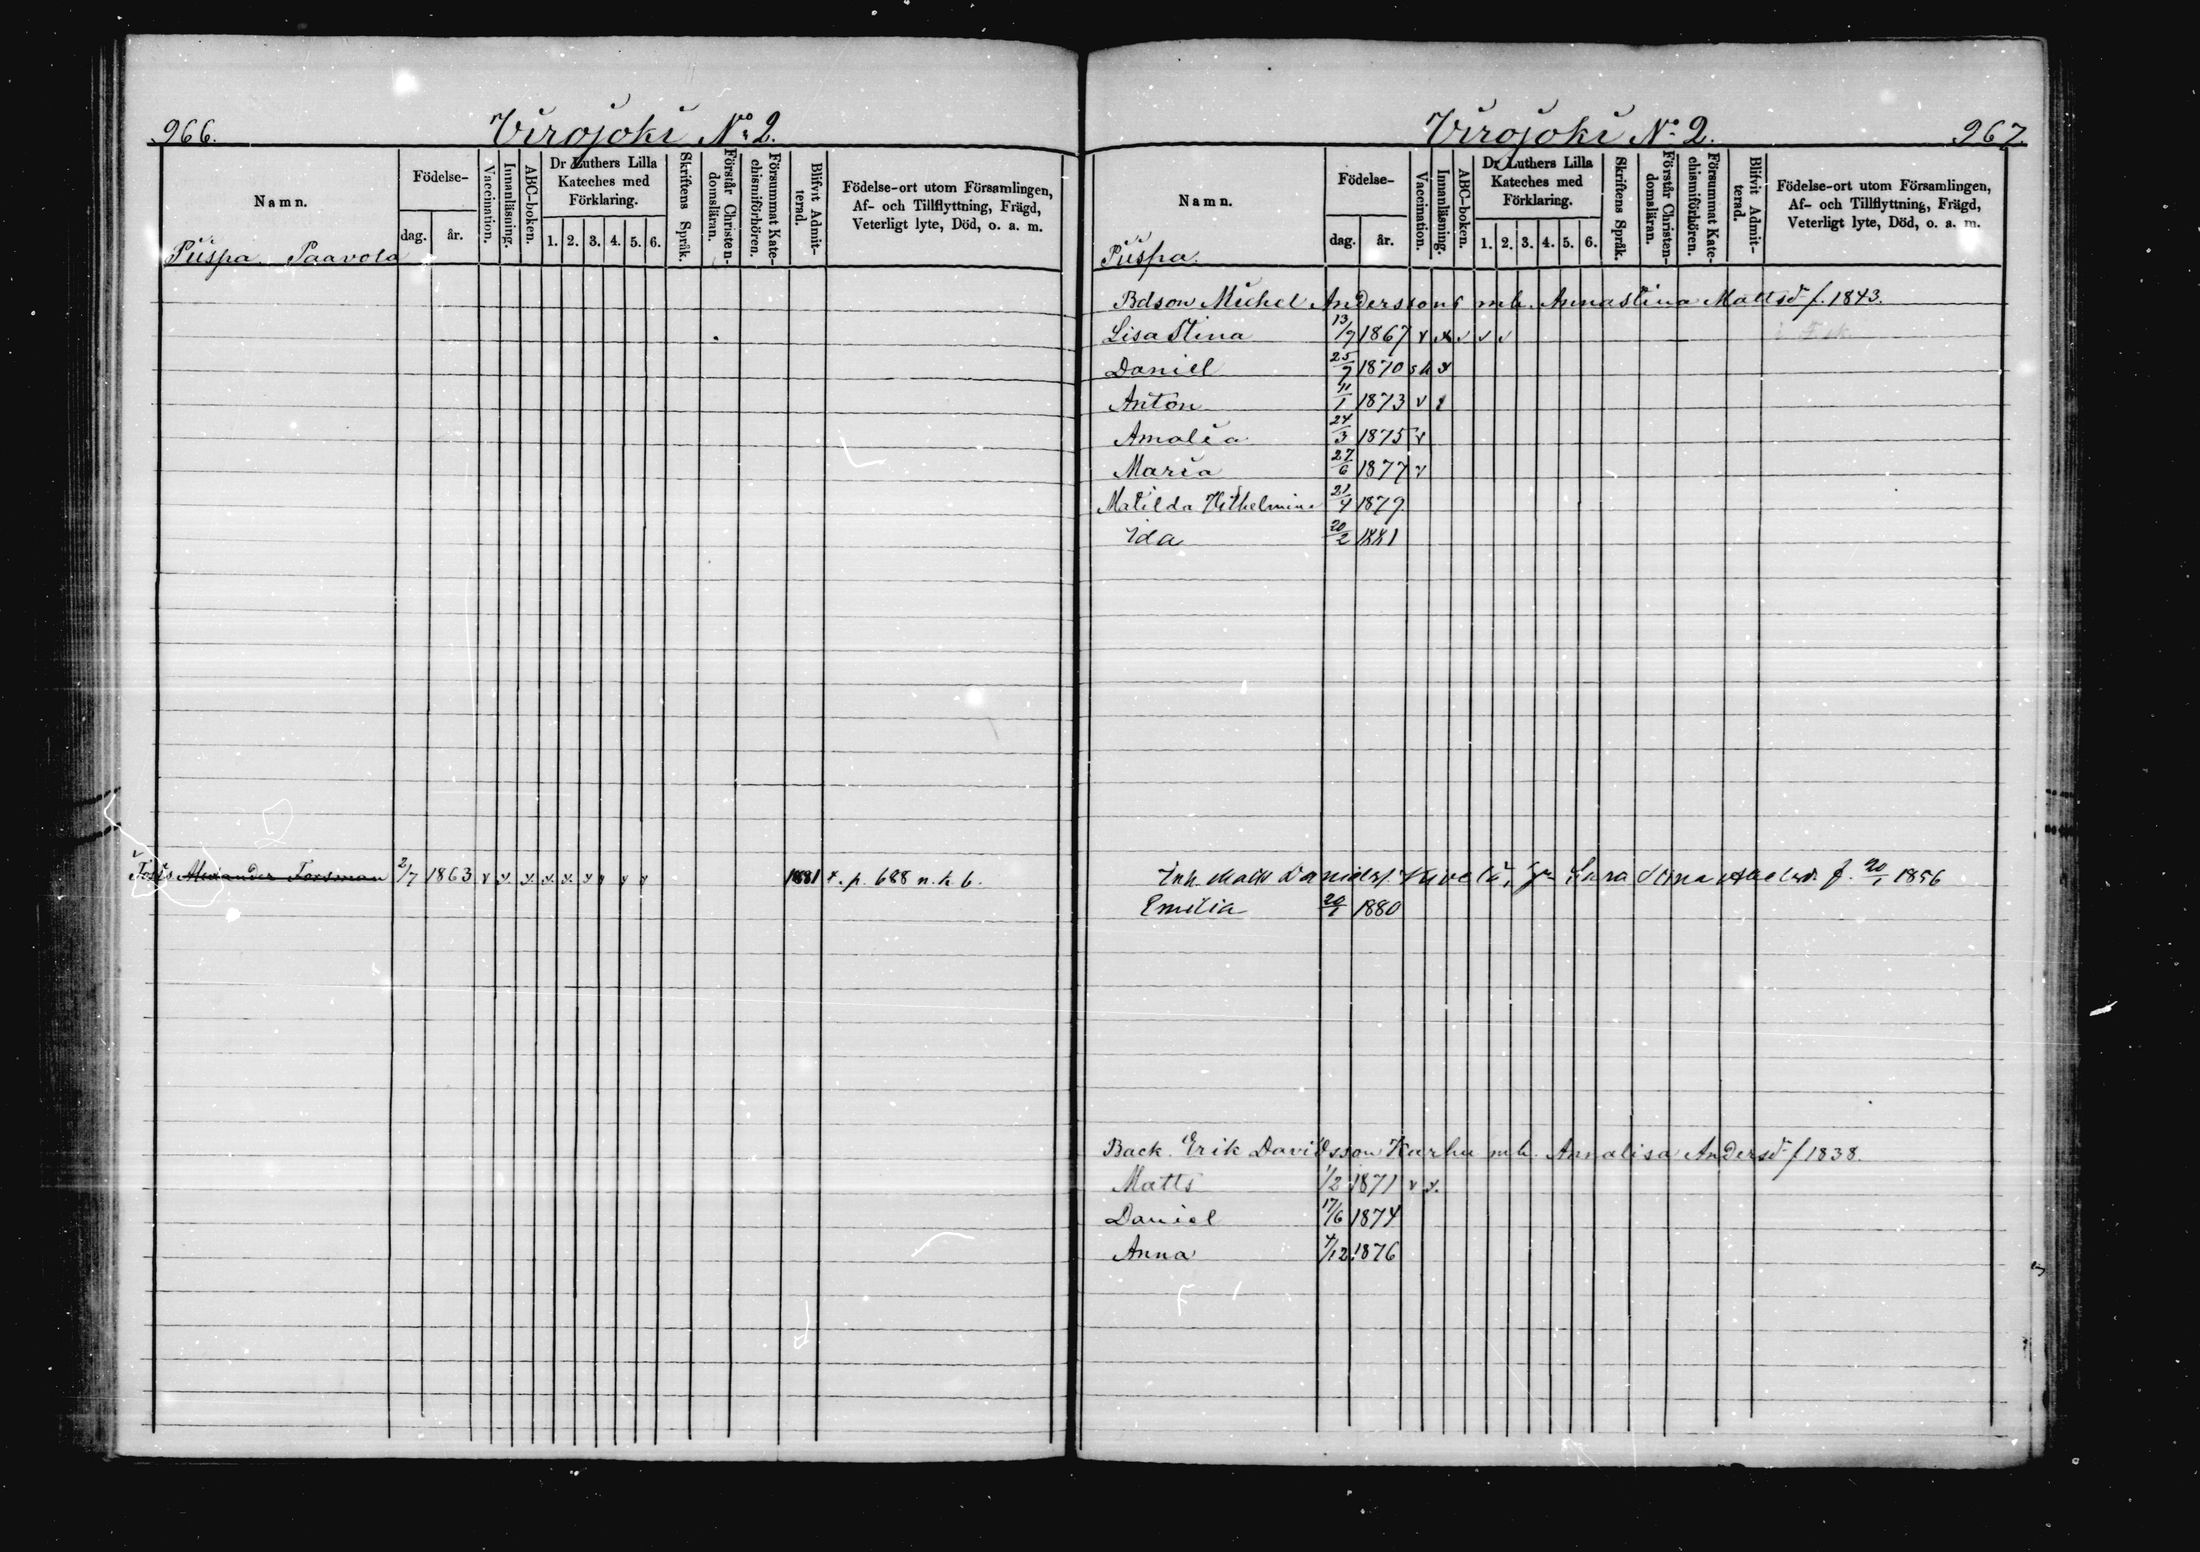 966.
Virojoki No 2.
Namn.
Födelse-
dag. år.
Vaccination.
Innanläsning.
ABC-boken.
Dr Luthers Lilla Kateches med Förklaring.
1. 2. 3. 4. 5. 6.
Skriftens Språk.
Förstår Christendomsläran.
Försummat Katechismiförhören.
Blifvit Admitterad.
Födelse-ort utom Församlingen,
Af- och Tillflyttning, Frägd,
Veterligt lyte, Död, o. a. m.
Piispa Paavola
Alexander Forsman 2/7 1863 v v v v v v v v v 1881 x. p. 688 n. k. b.
Virojoki No 2.
967.
Namn.
Födelse-
dag. år.
Vaccination.
Innanläsning.
ABC-boken.
Dr Luthers Lilla Kateches med Förklaring.
1. 2. 3. 4. 5. 6.
Skriftens Språk.
Förstår Christendomsläran.
Försummat Katechismiförhören.
Blifvit Admitterad.
Födelse-ort utom Församlingen,
Af- och Tillflyttning, Frägd,
Veterligt lyte, Död, o. a. m.
Piispa.
Bdson Michel Anderssons m h. Annastina Mattsd f. 1843.
Lisa Stina 13/7 1867 v x v v v
Daniel 25/7 1870 v
Anton 11/1 1873 v
Amalia 24/3 1875 v
Maria 27/6 1877 v
Matilda Vilhelmina 21/4 1879
Ida 20/2 1881
Inh. Matts Daniels. Sara Stina f. 20/1 1856
Emilia 20/1 1880
Back. Erik Davidsson Karhu m h. Annalisa Andersd f 1838.
Matts 1/2 1871 v v.
Daniel 17/6 1874
Anna 4/12 1876